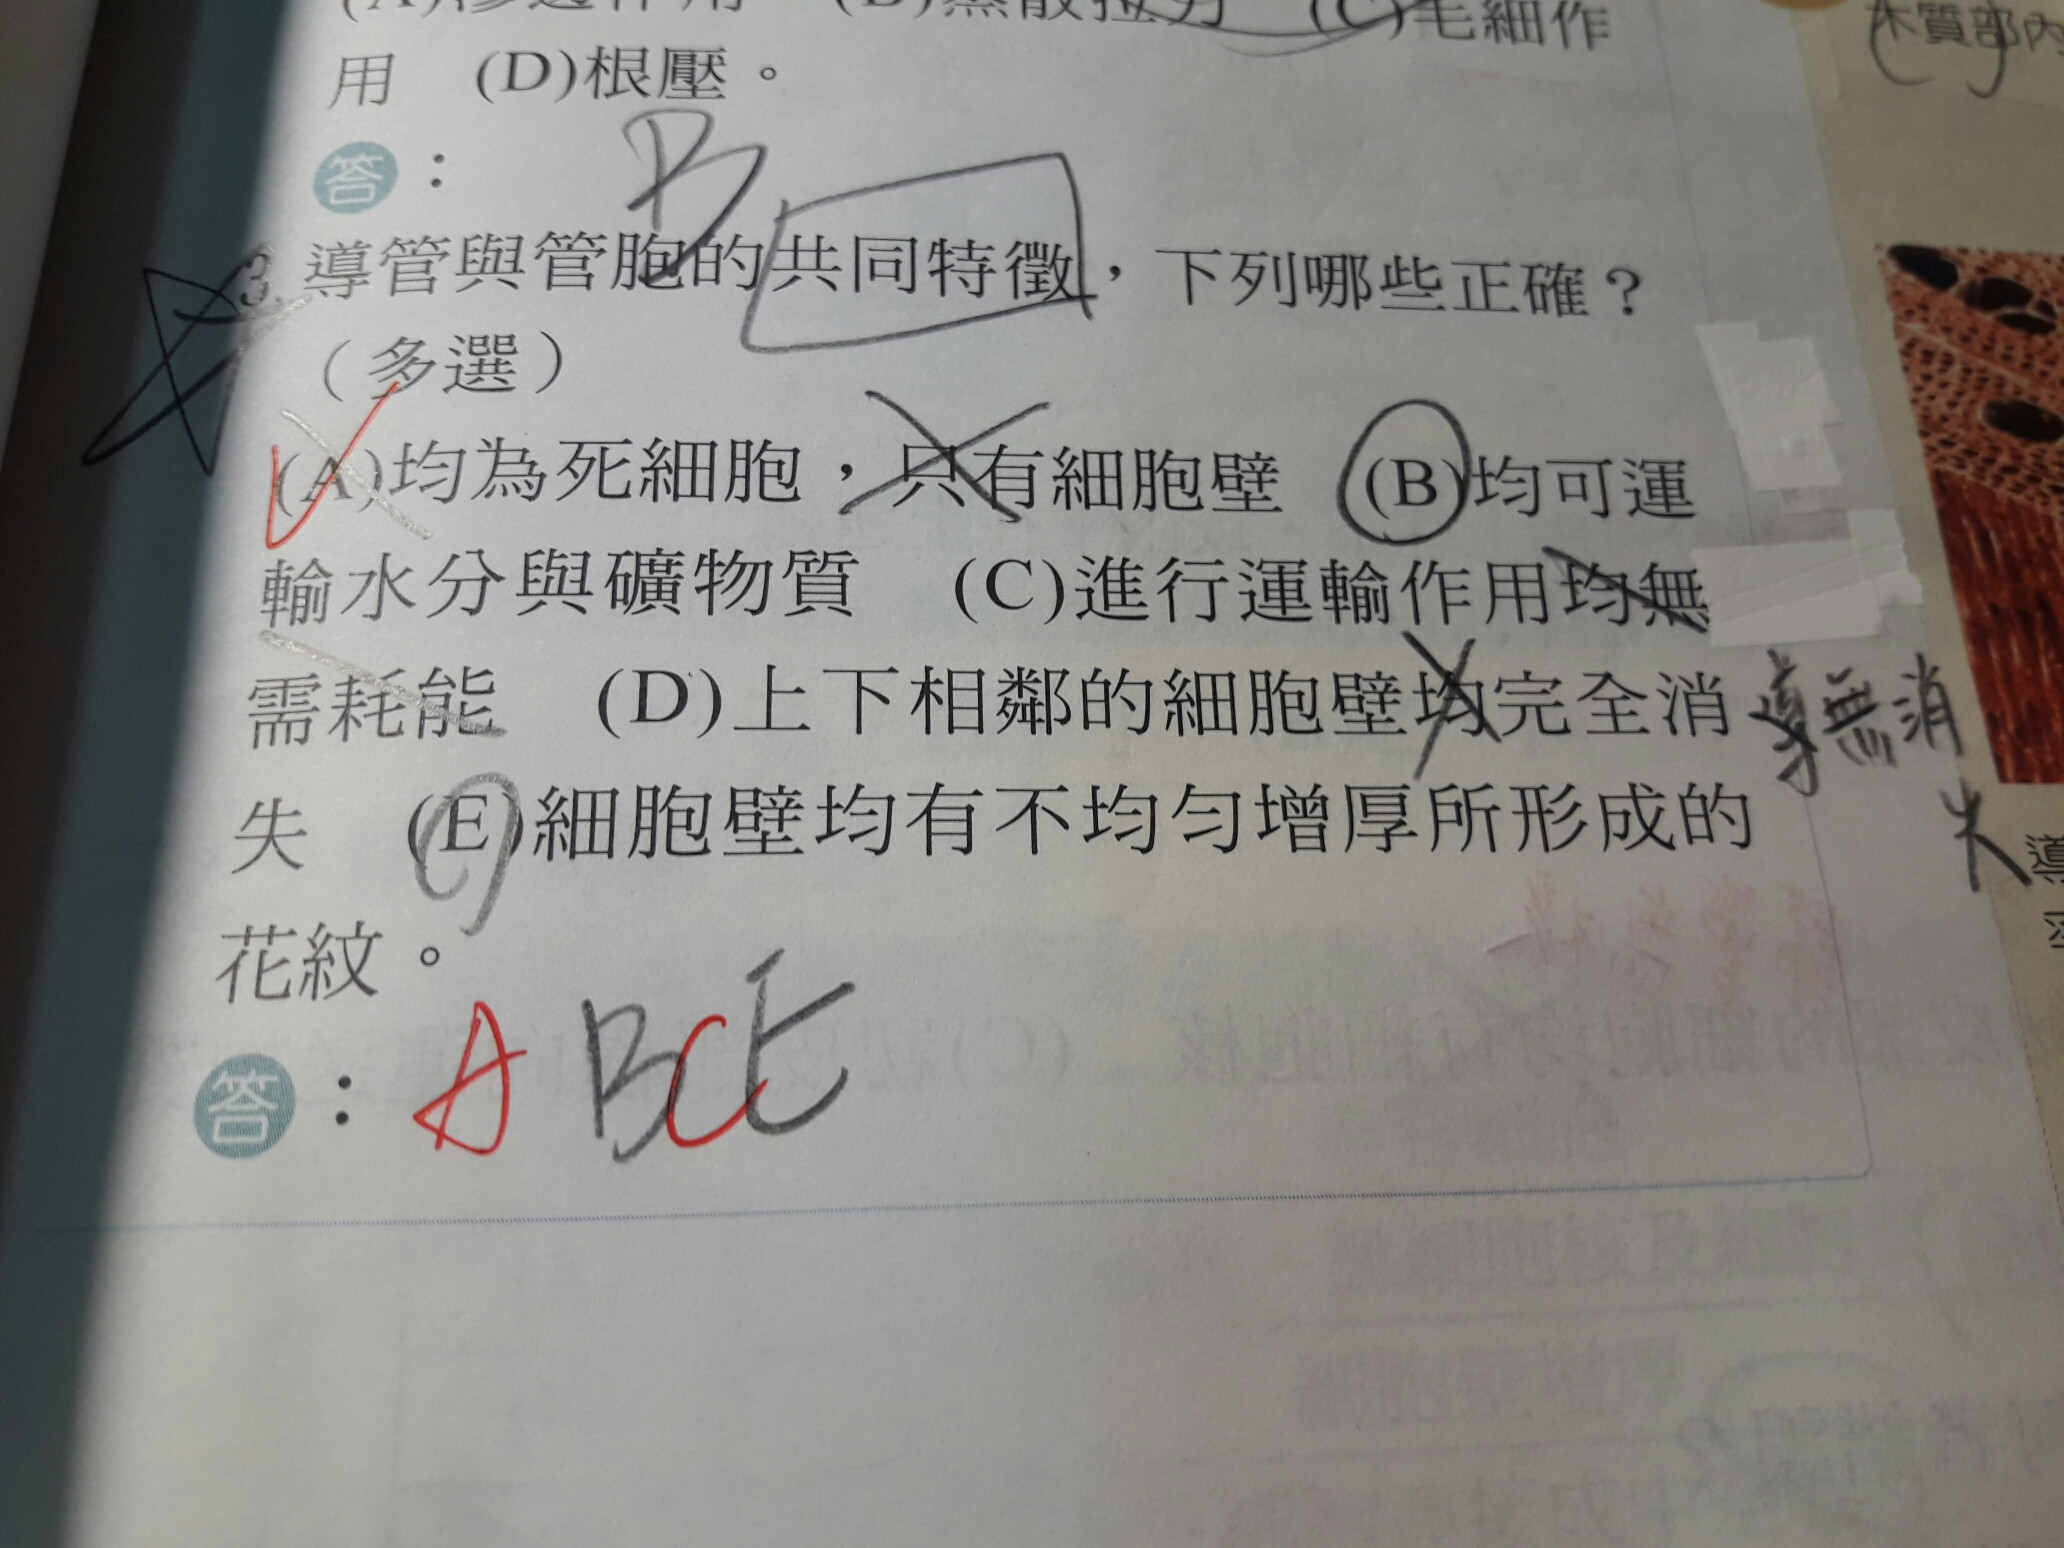 用　(D)根壓。
木質部內
答：
B
3. 導管與管胞的共同特徵，下列哪些正確？
（多選）
(A)均為死細胞，只有細胞壁　(B)均可運
輸水分與礦物質　(C)進行運輸作用均無
需耗能　(D)上下相鄰的細胞壁均完全消
導無消
失
失　(E)細胞壁均有不均勻增厚所形成的
花紋。
答：ABCE